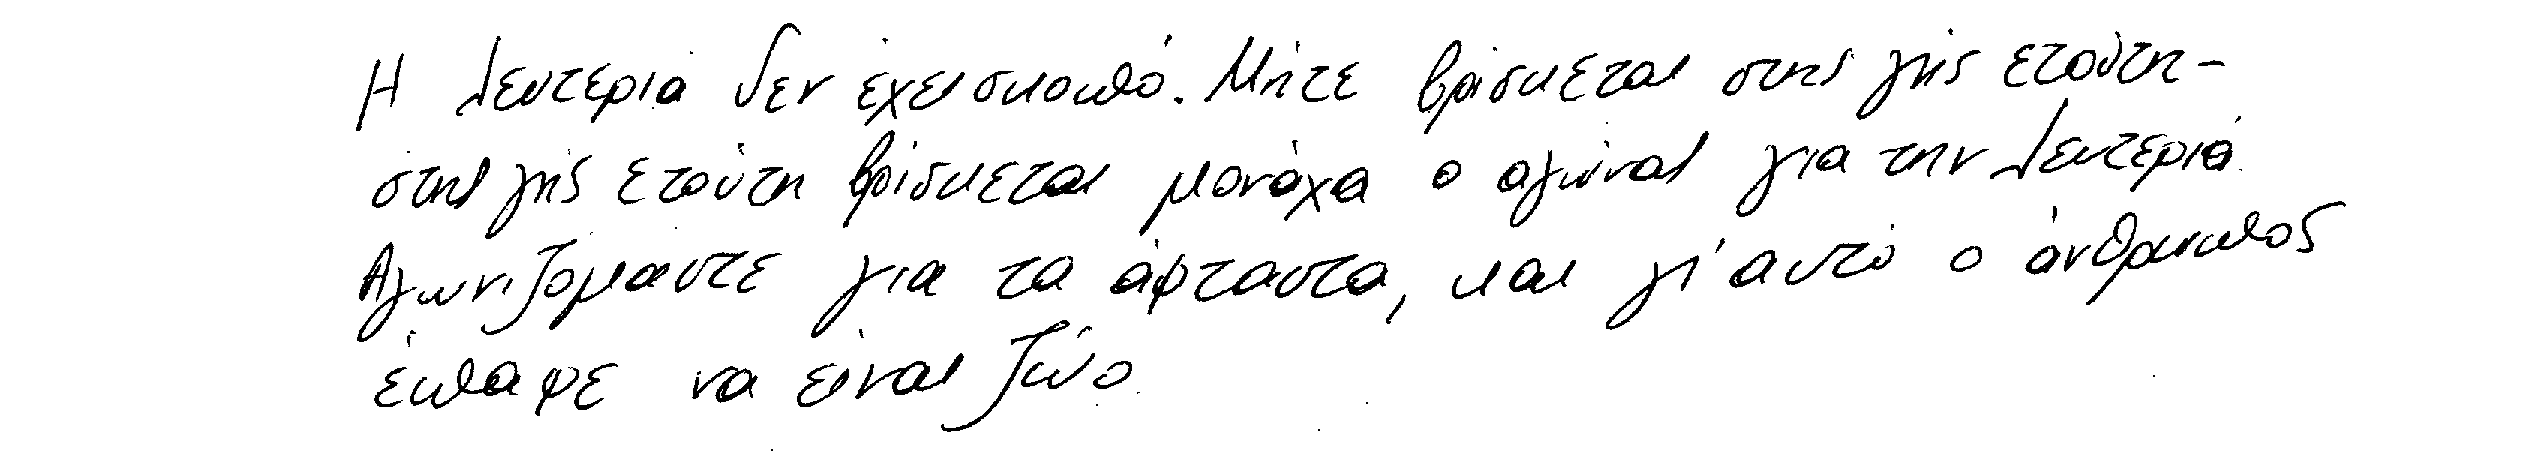 Η λευτεριά δεν έχει σκοπό. Μήτε βρίσκεται στης γης ετούτη-
στης γης ετούτη βρίσκεται μονάχα ο αγώνας για την λευτεριά.
Αγωνιζόμαστε για τα άφταστα, και γι' αυτό ο άνθρωπος
έπαψε να είναι ζώο